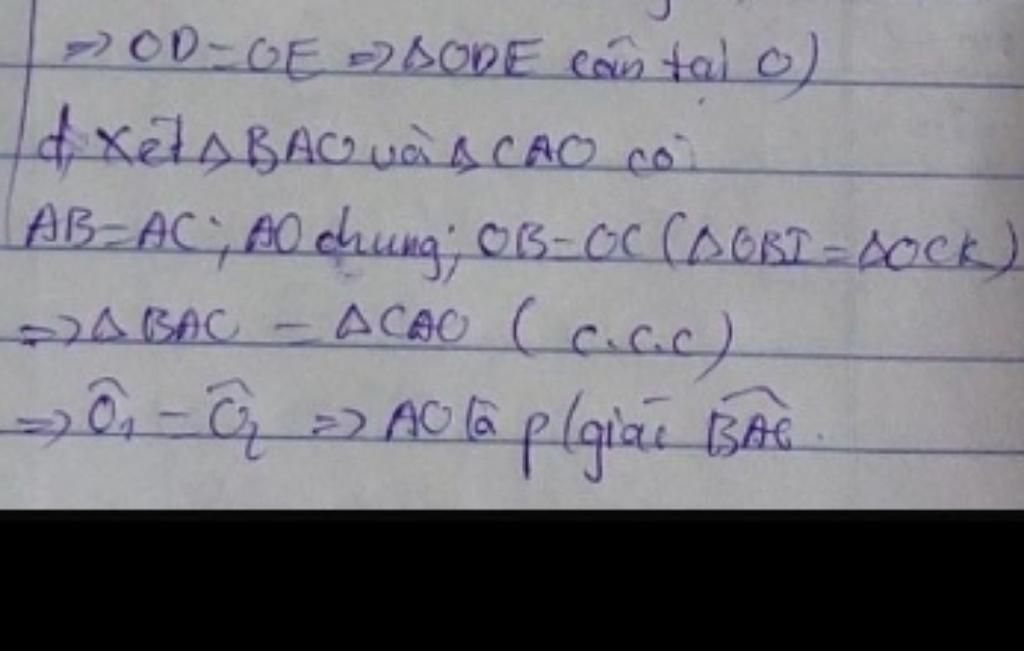 ⇒ OD = OE ⇒ ΔODE cân tại O)
d, Xét ΔBAO và ΔCAO có:
AB = AC; AO chung; OB = OC (ΔOBI = ΔOCK)
⇒ ΔBAO = ΔCAO (c.c.c)
⇒ Ô₁ = Ô₂ ⇒ AO là p/giác BAC.